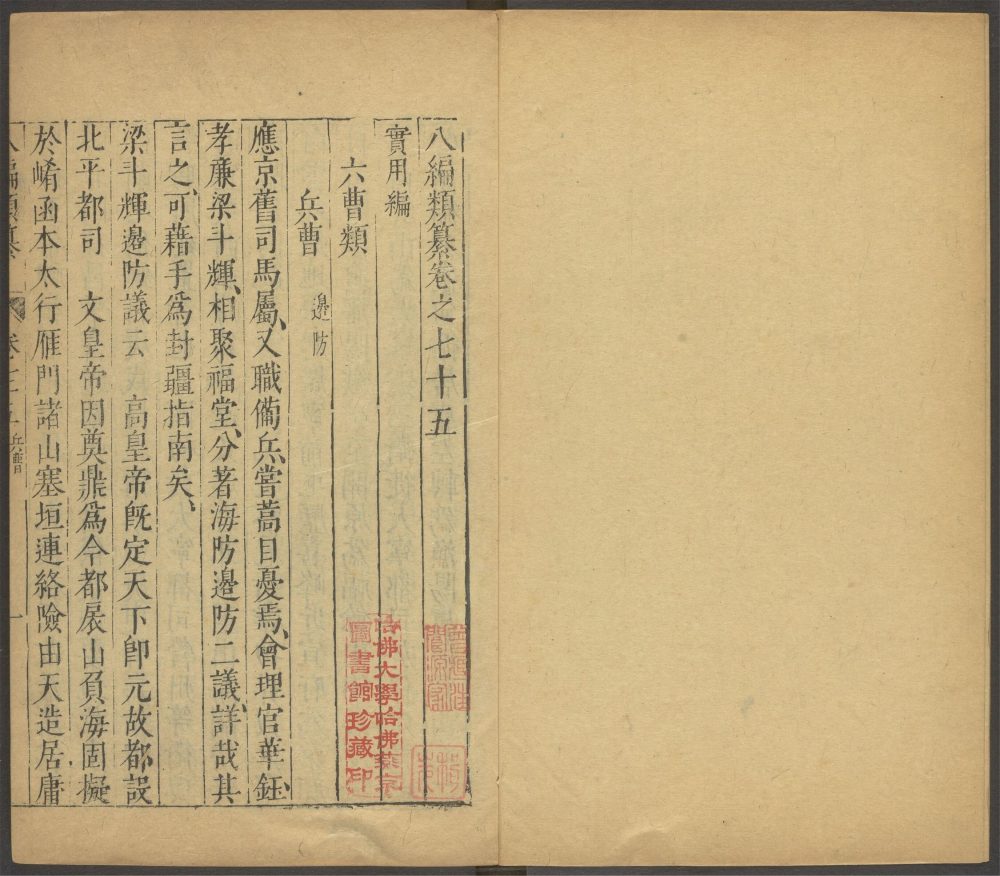 八編類纂卷之七十五
實用編
六曹類
兵曹 邊防
應京舊司馬屬、又職備兵、嘗蒿目憂焉、會理官華鈺、
孝廉梁斗輝、相聚福堂、分著海防邊防二議、詳哉其
言之、可藉手爲封疆指南矣、
梁斗輝邊防議云 高皇帝旣定天下卽元故都設
北平都司 文皇帝因奠鼎爲今都扆山負海固擬
於崤函本太行雁門諸山塞垣連絡險由天造居庸
八編類纂 卷七十五兵曹 一
哈佛大學哈佛燕京
圖書館珍藏印